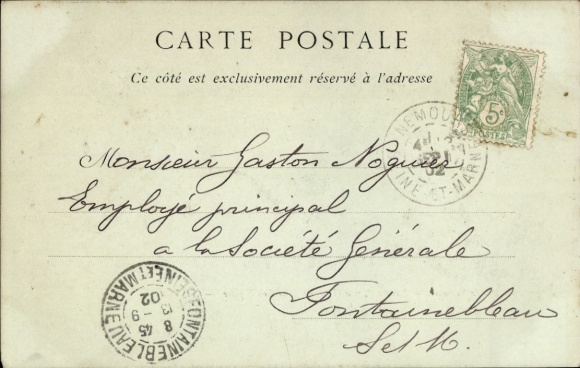 CARTE POSTALE
Ce côté est exclusivement réservé à l'adresse
5c
POSTES
NEMOURS
02
SEINE-ET-MARNE
Monsieur Gaston Noguier
Employé principal
a la Société Générale
Fontainebleau
S et M.
FONTAINEBLEAU
8 45
13 - 9
02
SEINE ET MARNE